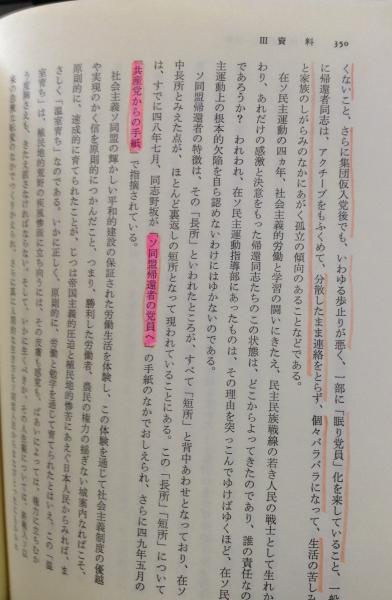 III 資 料
350
くないこと、さらに集団仮入党後でも、いわゆる歩止りが悪く、一部に「眠り党員」化を来していること、一般
に帰還者同志は、アクチーブをもふくめて、分散したまま連絡をとらず、個々バラバラになって、生活の苦しみ
と家族のしがらみのなかにあがく孤立の傾向のあることなどである。
在ソ民主運動の四ヵ年、社会主義的労働と学習の闘いにきたえ、民主民族戦線の若き人民の戦士として生れか
わり、あれだけの感激と決意をもった帰還同志たちのこの状態は、どこからよってきたのであり、誰の責任なの
であろうか? われわれ、在ソ民主運動指導部にあったものは、その理由を突っこんでゆけばゆくほど、在ソ民
主運動上の根本的欠陥を自ら認めないわけにはゆかないのである。
ソ同盟帰還者の特徴は、その「長所」といわれたところが、すべて「短所」と背中あわせとなっており、在ソ
中長所とみえた点が、ほとんど裏返しの短所となって現われていることにある。この「長所」「短所」について
は、すでに四八年七月、同志野坂が「ソ同盟帰還者の党員へ」の手紙のなかでおしえられ、さらに四九年五月の
「共産党からの手紙」で指摘されている。
社会主義ソ同盟の輝かしい平和的建設の保証された労働生活を体験し、この体験を通じて社会主義制度の優越
や実現のかく信を原則的につかんだこと、つまり、勝利した労働者、農民の権力の揺ぎない城塞内なればこそ、
原則的に、速成的に育てられたことが、じつは帝国主義的圧迫と植民地的惨苦にあえぐ日本人民からみれば、ま
さしく「温室育ち」なのである。いかに正しく、原則的に、労働と勉学を通じて育てられたとはいえ、この「温
室育ち」は、植民地的荒野の疾風豪雨に立ち向うには、その皮膚も感覚も、ばあいによっては、権力に立ちむか